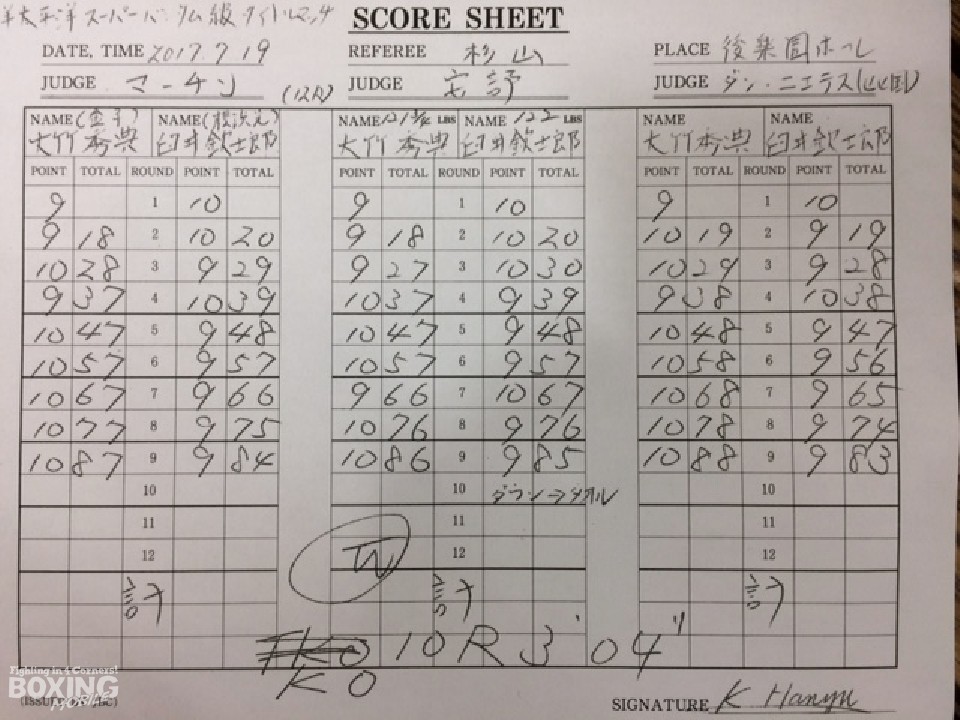 洋太平洋スーパーバンタム級タイトルマッチ
SCORE SHEET
DATE, TIME 2017.7.19 REFEREE 杉山 PLACE 後楽園ホール
JUDGE マーチン (12R) JUDGE 安部 JUDGE ダン・ニエテス(比国)
NAME (金子) NAME NAME 121 3/4 LBS NAME 122 LBS NAME NAME
大竹秀典 臼井欽士郎 大竹秀典 臼井欽士郎 大竹秀典 臼井欽士郎
POINT TOTAL ROUND POINT TOTAL POINT TOTAL ROUND POINT TOTAL POINT TOTAL ROUND POINT TOTAL
9 1 10 9 1 10 9 1 10
9 18 2 10 20 9 18 2 10 20 10 19 2 9 19
10 28 3 9 29 9 27 3 10 30 10 29 3 9 28
9 37 4 10 39 10 37 4 9 39 9 38 4 10 38
10 47 5 9 48 10 47 5 9 48 10 48 5 9 47
10 57 6 9 57 10 57 6 9 57 10 58 6 9 56
10 67 7 9 66 9 66 7 10 67 10 68 7 9 65
10 77 8 9 75 10 76 8 9 76 10 78 8 9 74
10 87 9 9 84 10 86 9 9 85 10 88 9 9 83
10 10 ダウン→タオル 10
11 11 11
12 W 12 12
計 計 計
TKO 10R 3'04"
KO
Fighting in 4 Corners!
BOXING
SIGNATURE K Hanyu